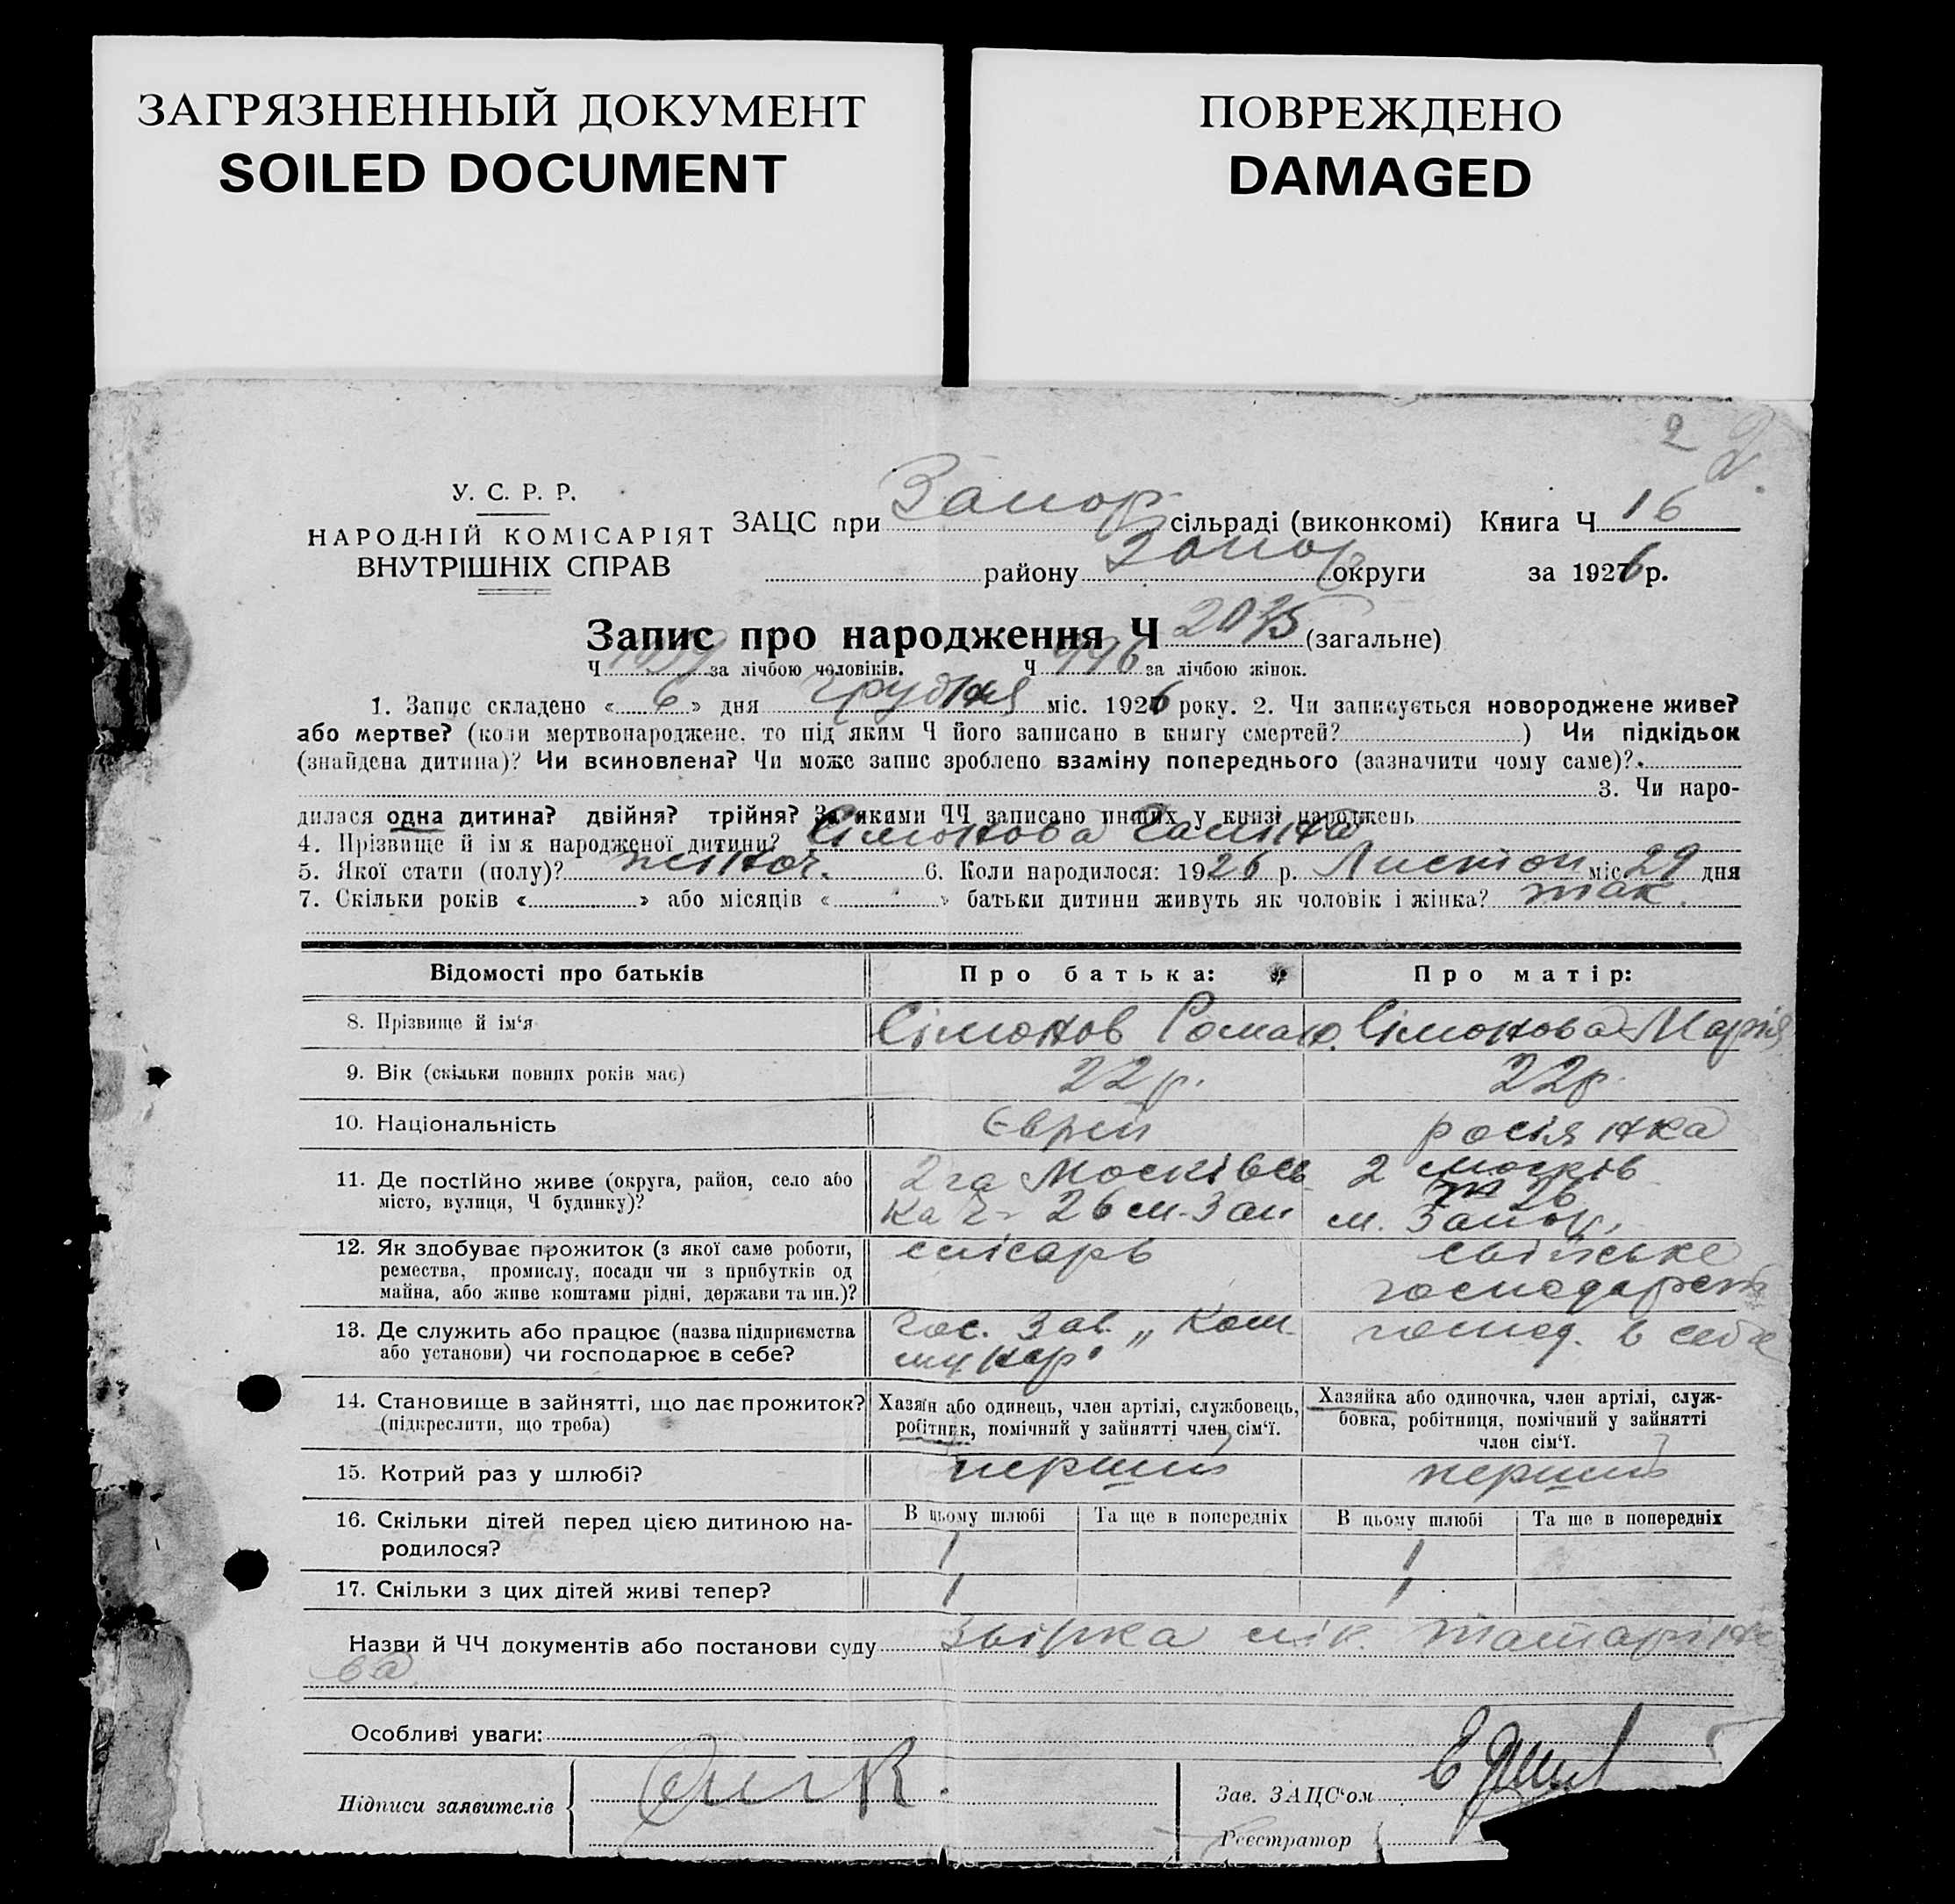 ЗАГРЯЗНЕННЫЙ ДОКУМЕНТ
SOILED DOCUMENT
ПОВРЕЖДЕНО
DAMAGED
2 2
У. С. Р. Р.
НАРОДНІЙ КОМІСАРІЯТ
ВНУТРІШНІХ СПРАВ
ЗАЦС при Запор сільраді (виконкомі) Книга Ч 16
району Запор округи за 1926 р.
Запис про народження Ч 2035 (загальне)
Ч за лічбою чоловіків. Ч 996 за лічбою жінок.
1. Запис складено « 6 » дня грудня міс. 1926 року. 2. Чи записується новороджене живе?
або мертве? (коли мертвонароджене, то під яким Ч його записано в книгу смертей? ) Чи підкідьок
(знайдена дитина)? Чи всиновлена? Чи може запис зроблено взаміну попереднього (зазначити чому саме)?
3. Чи наро-
дилася одна дитина? двійня? трійня? За якими ЧЧ записано инших у книзі народжень
4. Прізвище й ім я народженої дитини? Сімонова Галина
5. Якої стати (полу)? жіноч. 6. Коли народилося: 1926 р. Листоп міс 29 дня
7. Скільки років « » або місяців « » батьки дитини живуть як чоловік і жінка? так.
Відомості про батьків
Про батька:
Про матір:
8. Прізвище й ім'я
Сімонов Роман
Сімонова Марія
9. Вік (скільки повних років має)
22 р.
22 р.
10. Національність
Єврей
росіянка
11. Де постійно живе (округа, район, село або
місто, вулиця, Ч будинку)?
2га Москівсь
ка Ч- 26 м. Зап
2 Москів
26
м. Запор.
12. Як здобуває прожиток (з якої саме роботи,
ремества, промислу, посади чи з прибутків од
майна, або живе коштами рідні, держави та ин.)?
слісарь
свійське
господарст
13. Де служить або працює (назва підприємства
або установи) чи господарює в себе?
Гос. Зав. „ Ком-
мунар"
господ. в себе
14. Становище в зайнятті, що дає прожиток?
(підкреслити, що треба)
Хазяїн або одинець, член артілі, службовець,
робітник, помічний у зайнятті член сім'ї.
Хазяйка або одиночка, член артілі, служ-
бовка, робітниця, помічний у зайнятті
член сім'ї.
15. Котрий раз у шлюбі?
перший
перший
16. Скільки дітей перед цією дитиною на-
родилося?
В цьому шлюбі
Та ще в попередніх
В цьому шлюбі
Та ще в попередніх
1
1
17. Скільки з цих дітей живі тепер?
1
1
Назви й ЧЧ документів або постанови суду Звірка лік. Татаріно
ва
Особливі уваги:
Підписи заявителів
Зав. ЗАЦС'ом
Реєстратор